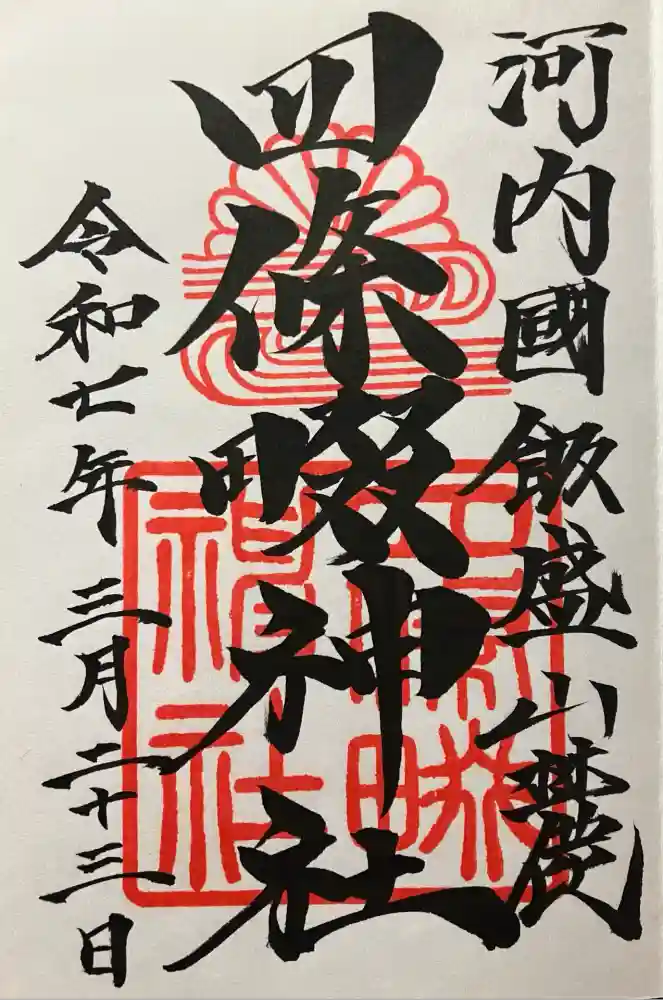 河内國飯盛山麓
四條畷神社
令和七年三月二十三日